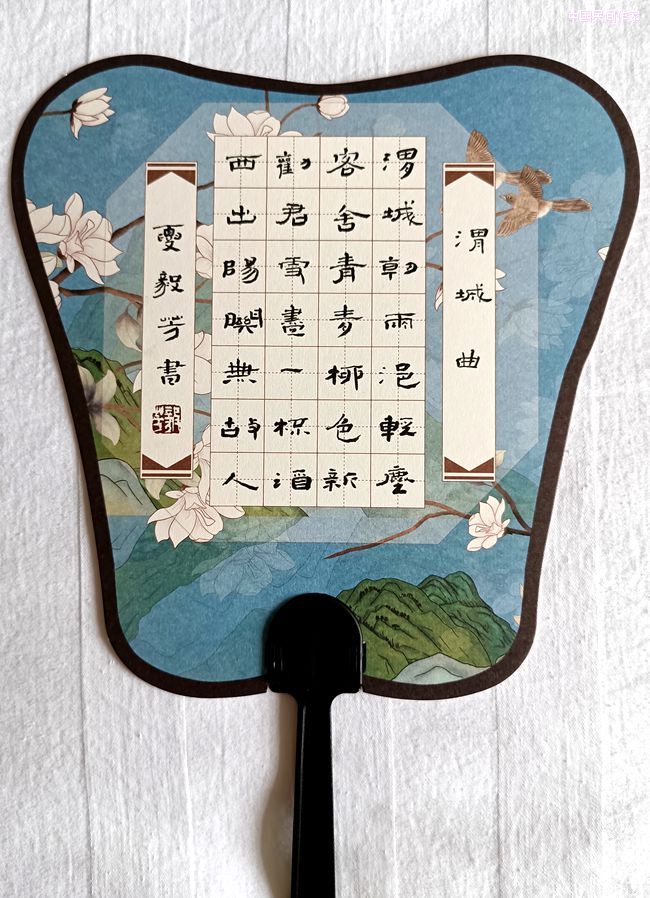 渭城曲
渭城朝雨浥輕塵
客舍青青柳色新
勸君更盡一杯酒
西出陽關無故人
夏毅芳書